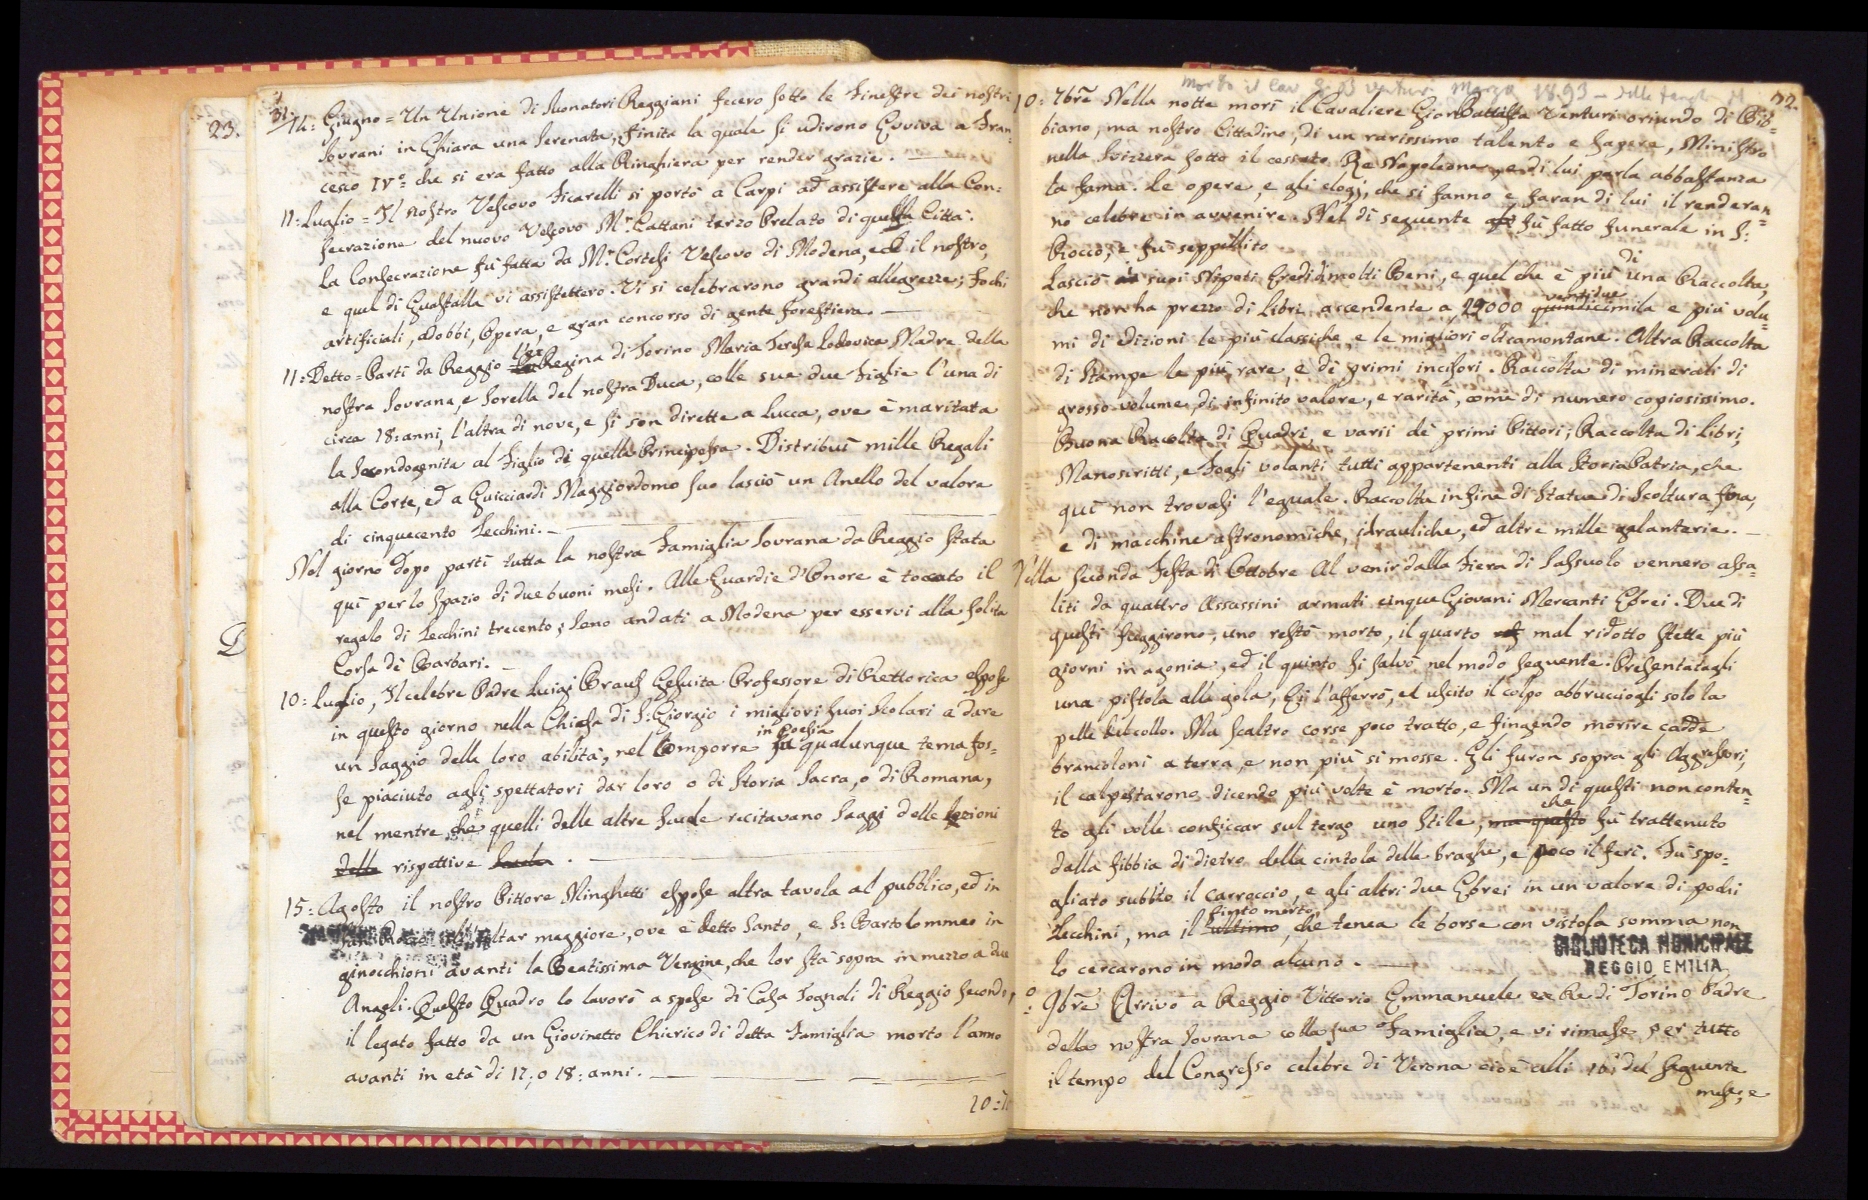 23.
31.
14: Giugno = Un Unione di Suonatori Reggiani fecero sotto le Finestre dei nostri
Sovrani in Ghiara una Serenata, finita la quale si udirono Evviva a Fran-
cesco IV° che si era fatto alla Ringhiera per render grazie. —
11: Luglio = Il nostro Vescovo Ficarelli si portò a Carpi ad assistere alla Con-
secrazione del nuovo Vescovo M.r Cattani terzo Prelato di quella Città.
La Consecrazione fù fatta da M.r Cortesi Vescovo di Modena, ed il nostro,
e quel di Guastalla vi assistettero. Vi si celebrarono grandi allegrezze; Fochi
artificiali, Adobbi, Opera, e gran concorso di gente forestiera. —
11: Detto = Partì da Reggio l'ex Regina di Torino Maria Teresa Lodovica Madre della
nostra Sovrana, e Sorella del nostro Duca, colle sue due Figlie l'una di
circa 18: anni, l'altra di nove, e si son dirette a Lucca, ove è maritata
la Secondogenita al Figlio di quella Principessa. Distribuì mille Regali
alla Corte, ed a Guicciardi Maggiordomo suo lasciò un Anello del valore
di cinquecento Zecchini. —
Nel giorno dopo partì tutta la nostra Famiglia Sovrana da Reggio stata
quì per lo spazio di due buoni mesi. Alle Guardie d'Onore è toccato il
regalo di Zecchini trecento; Sono andati a Modena per esservi alla solita
Corsa de Barbari. —
10: Luglio, Il celebre Padre Luigi Gesuita Professore di Rettorica espose
in questo giorno nella Chiesa di S: Giorgio i migliori suoi Scolari a dare
un Saggio della loro abilità, nel Comporre in Poesia sù qualunque tema fos-
se piaciuto agli spettatori dar loro o di Storia Sacra, o di Romana,
nel mentre, che quelli delle altre Scuole recitavano Saggi delle lezioni
delle rispettive Scuole. —
15: Agosto il nostro Pittore Minghetti espose altra tavola al pubblico, ed in
altar maggiore, ove è detto Santo, e S: Bartolommeo in
ginocchioni avanti la Beatissima Vergine, che lor stà sopra in mezzo a due
Angeli. Questo Quadro lo lavorò a spese di Casa Sognoli di Reggio secondo
il legato fatto da un Giovinetto Chierico di detta Famiglia morto l'anno
avanti in età di 17; o 18: anni. —
10:
Morto il Cav. Venturi
32.
10: 7bre Nella notte morì il Cavaliere Gion Battista Venturi oriundo di Bib-
biano, ma nostro Cittadino, di un rarissimo talento e sapere, Ministro
nella Svizzera sotto il cessato Re Napoleone, e di lui parla abbastanza
la fama. Le opere, e gli elogj, che si fanno e faran di lui il renderan-
no celebre in avvenire. Nel dì seguente fù fatto funerale in S:
Rocco, e fù seppellito
Lasciò a' suoi Nipoti Eredi molti Beni, e quel che è più di una Raccolta,
che non ha prezzo di Libri ascendente a 22000 quindicimila ventidue e più volu-
mi di edizioni le più classiche, e le migliori oltramontane. Altra Raccolta
di Stampe le più rare, e di primi incisori. Raccolta di minerali di
grosso volume, di infinito valore, e rarità, come di numero copiosissimo.
Buona Racolta di Quadri, e varii de primi Pittori; Raccolta di Libri,
Manoscritti, e Fogli volanti tutti appartenenti alla Storia Patria, che
quì non trovasi l'eguale. Raccolta infine di Statue di Scoltura fina,
e di macchine astronomiche, idrauliche, ed altre mille galanterie. —
Nella seconda Festa di Ottobre Al venir dalla Fiera di Sassuolo vennero assa-
liti da quattro Assassini armati cinque Giovani Mercanti Ebrei. Due di
questi fuggirono, uno restò morto, il quarto mal ridotto stette più
giorni in agonia, ed il quinto si salvò nel modo seguente. Presentatagli
una pistola alla gola, Ei l'afferrò, ed uscito il colpo abbrucciogli solo la
pelle del collo. Ma scaltro corse poco tratto, e fingendo morire cadde
brancoloni a terra, e non più si mosse. Gli furon sopra gli Aggressori,
il calpestarono dicendo più volte è morto. Ma un di questi non conten-
to gli volle conficcar sul tergo uno Stile, ma questo che fù trattenuto
dalla fibbia di dietro della cintola delle braghe, e poco il ferì. Fù spo-
gliato subito il Carroccio, e gli altri due Ebrei in un valore di pochi
Zecchini, ma il ultimo finto morto, che tenea le borse con vistosa somma non
lo cercarono in modo alcuno. —
BIBLIOTECA MUNICIPALE
REGGIO EMILIA
9bre Arrivò a Reggio Vittorio Emmanuele ex Re di Torino Padre
della nostra Sovrana colla sua Famiglia, e vi rimase per tutto
il tempo del Congresso celebre di Verona cioè alli 16: del seguente
mese, e